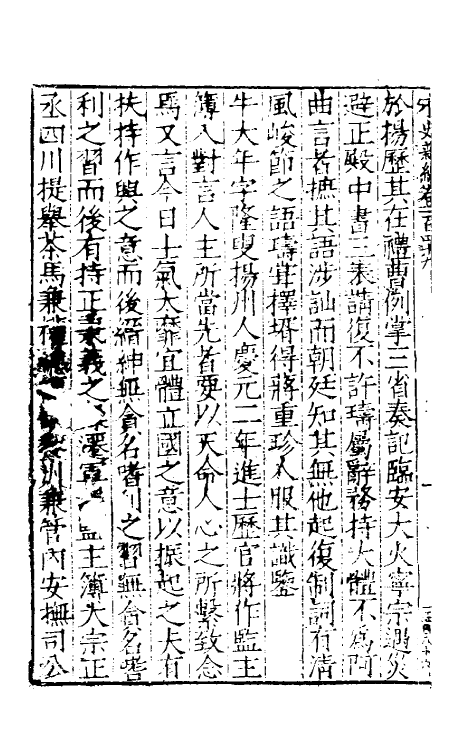 宋史新編卷一百四十九
於揚歷其在禮曹例掌三省奏記臨安大火寧宗遇災
避正殿中書三表請復不許璹屬辭務持大體不為阿
曲言者摭其語涉訕而朝廷知其無他起復制詞有清
風峻節之語璹宜擇壻得蔣重珍人服其識鑒
牛大年字隆叟揚州人慶元二年進士歷官將作監主
簿入對言人主所當先者要以天命人心之所繫致念
焉又言今日士氣大靡宜體立國之意以振起之夫有
扶持作興之意而後縉紳無貪名嗜利之習無貪名嗜
利之習而後有持正秉義之 遷軍 監主簿大宗正
丞四川提舉茶馬兼權 州兼管內安撫司公